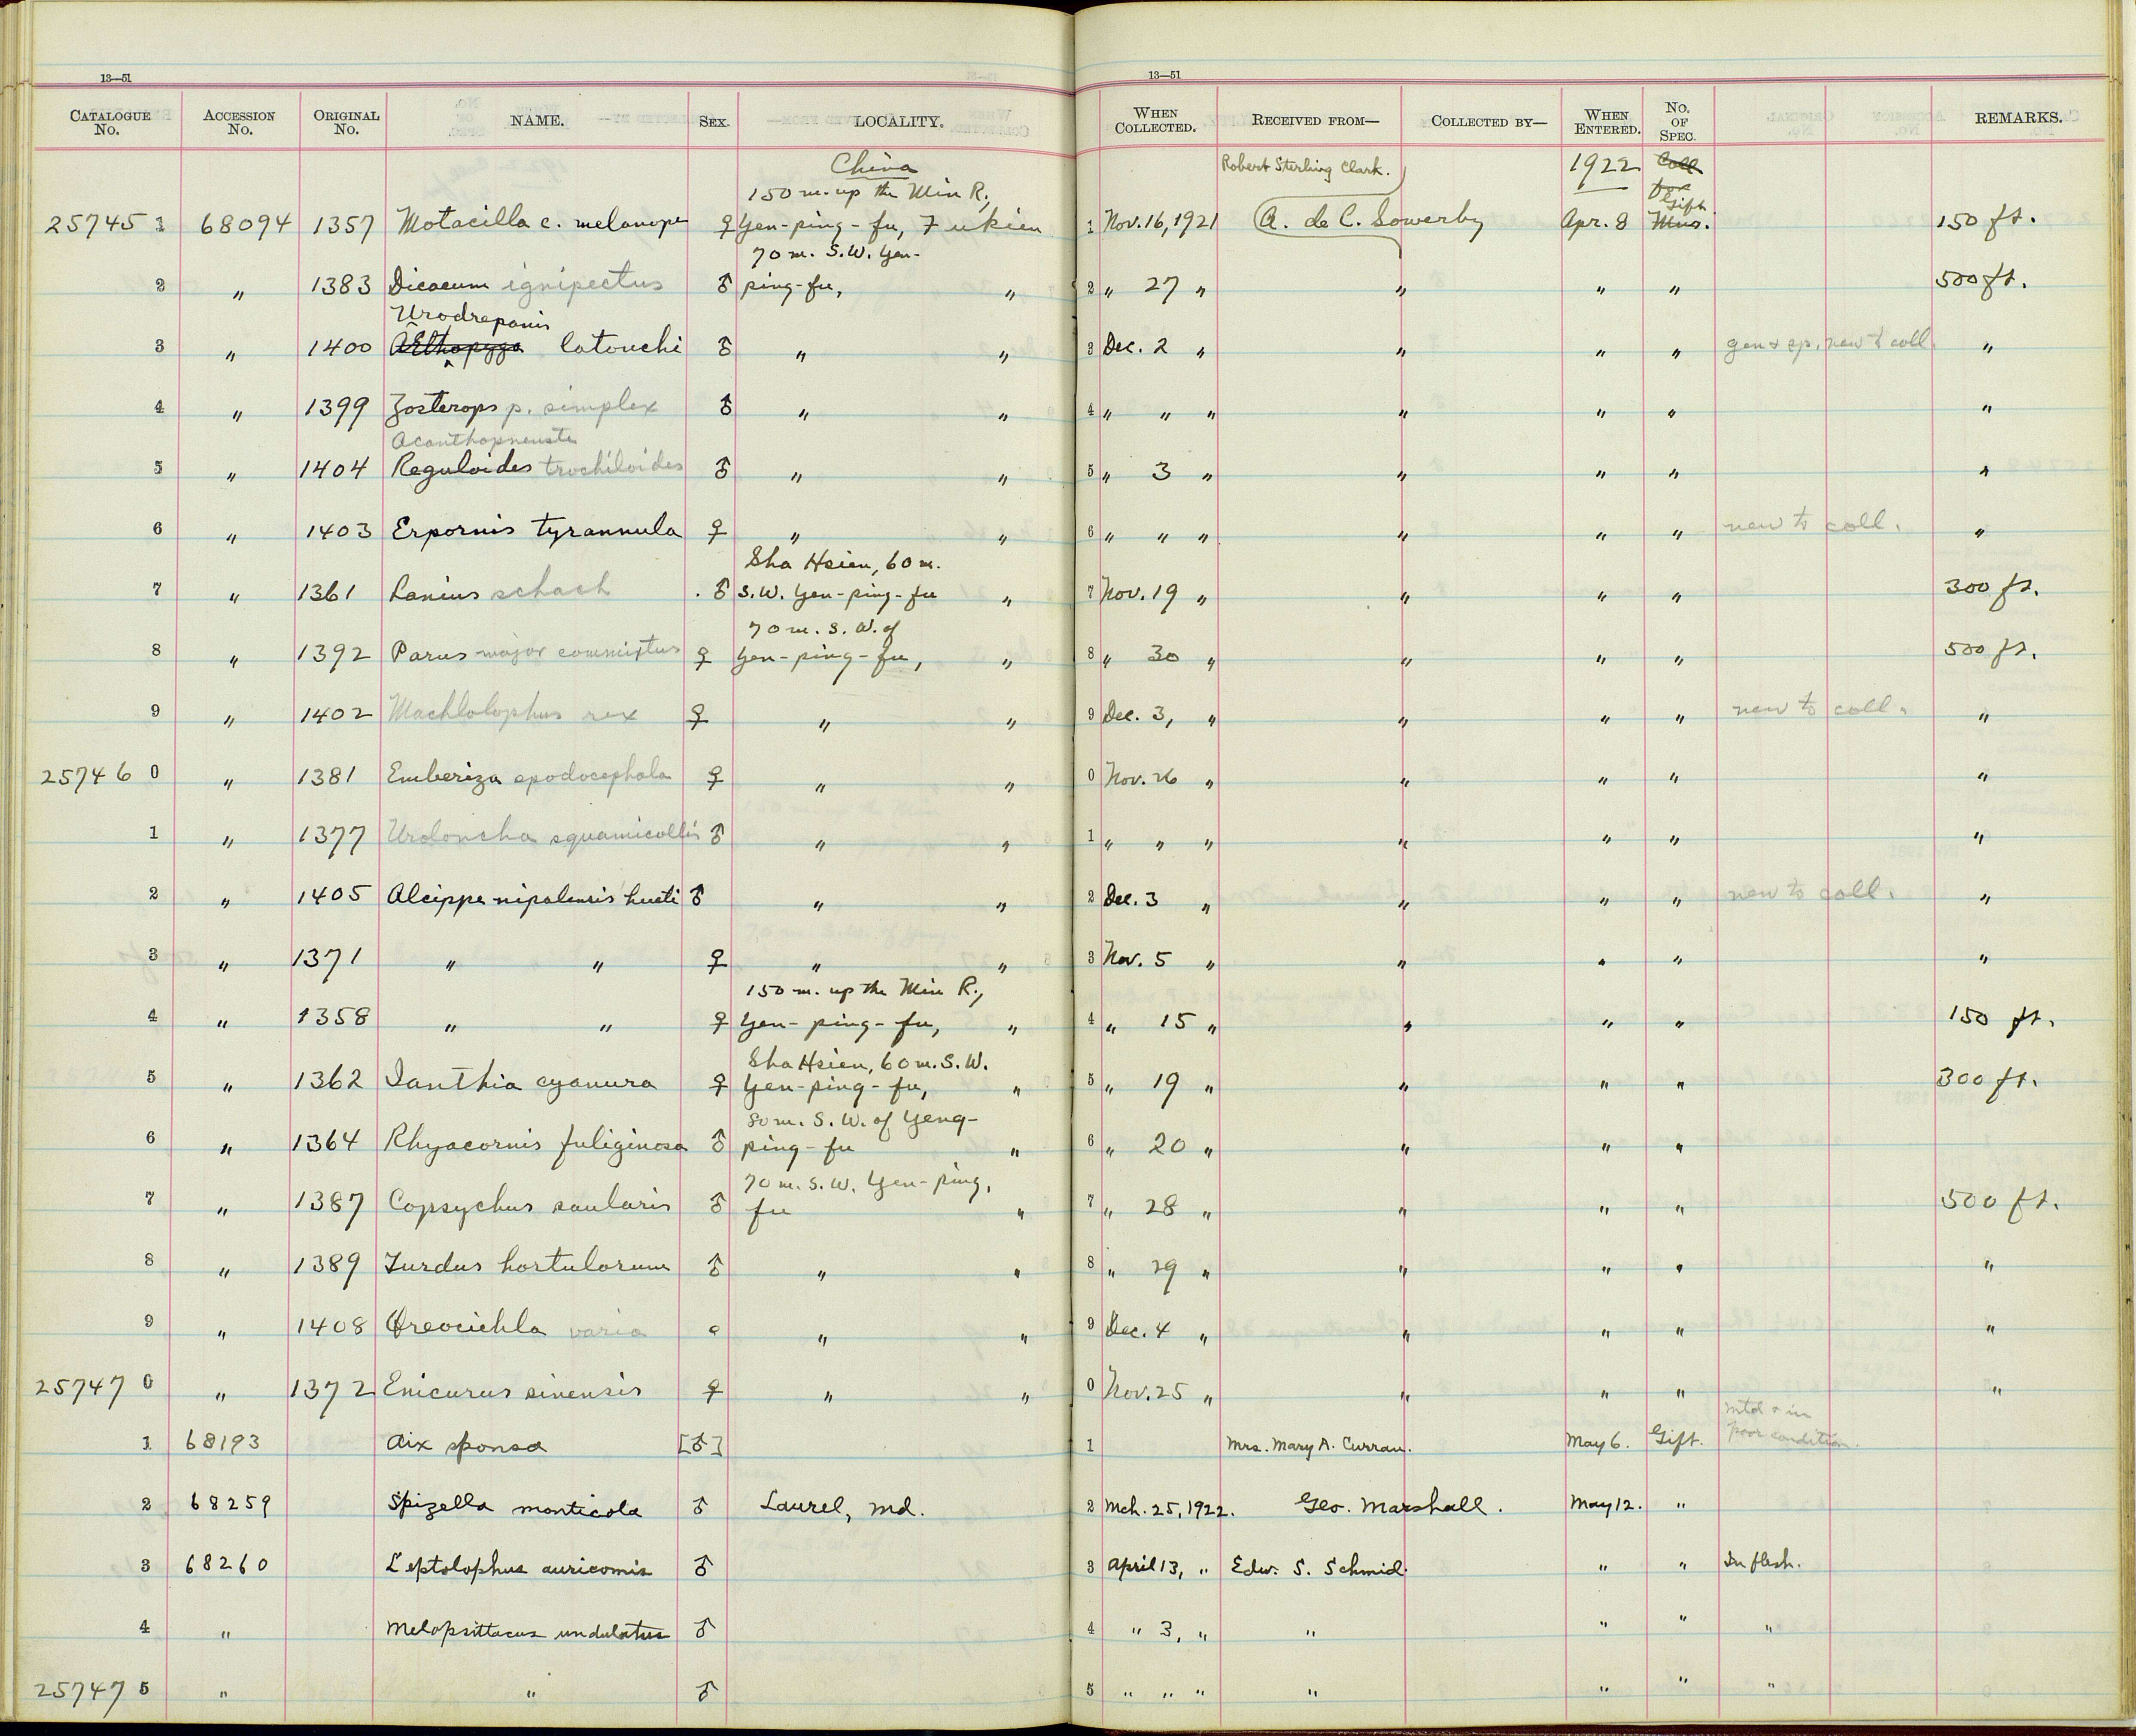 13—51
13—51
CATALOGUE No. ACCESSION No. ORIGINAL No. NAME. SEX. LOCALITY. WHEN COLLECTED. RECEIVED FROM— COLLECTED BY— WHEN ENTERED. No. OF SPEC. REMARKS.
China Robert Sterling Clark. 1922 Coll
150 m. up the Min R., for Gift
25745 1 68094 1357 Motacilla c. melanope ♀ Yen-ping-fu, Fukien 1 Nov. 16, 1921 A. de C. Sowerby Apr. 8 Mus. 150 ft.
70 m. S.W. Yen-
2 " 1383 Dicaeum ignipectus ♂ ping-fu, " 2 " 27 " " " " 500 ft.
Urodrepanis
3 " 1400 AEthopyga latouchi ♂ " " 3 Dec. 2 " " " " gen & sp. new to coll. "
4 " 1399 Zosterops p. simplex ♂ " " 4 " " " " " " "
Acanthopneuste
5 " 1404 Reguloides trochiloides ♂ " " 5 " 3 " " " " "
6 " 1403 Erpornis tyrannula ♀ " " 6 " " " " " " new to coll. "
Sha Hsien, 60 m.
7 " 1361 Lanius schach ♂ S.W. Yen-ping-fu " 7 Nov. 19 " " " " 300 ft.
70 m. S.W. of
8 " 1392 Parus major commixtus ♀ Yen-ping-fu, " 8 " 30 " " " " 500 ft.
9 " 1402 Machlolophus rex ♀ " " 9 Dec. 3, " " " " new to coll. "
25746 0 " 1381 Emberiza spodocephala ♀ " " 0 Nov. 26 " " " " "
1 " 1377 Uroloncha squamicollis ♂ " " 1 " " " " " " "
2 " 1405 Alcippe nipalensis hueti ♂ " " 2 Dec. 3 " " " " new to coll. "
3 " 1371 " " ♀ " " 3 Nov. 5 " " " " "
150 m. up the Min R.,
4 " 1358 " " ♀ Yen-ping-fu, " 4 " 15 " " " " 150 ft.
Sha Hsien, 60 m. S.W.
5 " 1362 Ianthia cyanura ♀ Yen-ping-fu, " 5 " 19 " " " " 300 ft.
80 m. S.W. of Yeng-
6 " 1364 Rhyacornis fuliginosa ♂ ping-fu " 6 " 20 " " " "
70 m. S.W. Yen-ping,
7 " 1387 Copsychus saularis ♂ fu " 7 " 28 " " " " 500 ft.
8 " 1389 Turdus hortulorum ♂ " " 8 " 29 " " " " "
9 " 1408 Oreocichla varia " " 9 Dec. 4 " " " " "
25747 0 " 1372 Enicurus sinensis ♀ " " 0 Nov. 25 " " " " "
mtd & in
1 68193 Aix sponsa [♂] 1 Mrs. Mary A. Curran. May 6. Gift. poor condition.
2 68259 Spizella monticola ♂ Laurel, Md. 2 Mch. 25, 1922. Geo. Marshall. May 12. "
3 68260 Leptolophus auricomis ♂ 3 April 13, " Edw. S. Schmid. " " In flesh.
4 " Melopsittacus undulatus ♂ 4 " 3, " " " " "
25747 5 " " ♂ 5 " " " " " " "